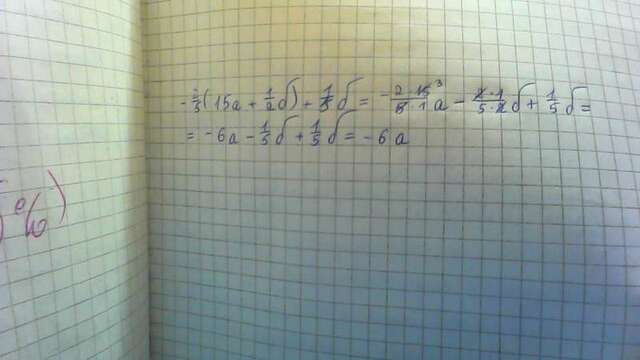 -2/5(15a + 1/2 б) + 1/5 б = -2·15³/5·1 a - 2·1/5·2 б + 1/5 б =
= -6a - 1/5 б + 1/5 б = -6a
%)